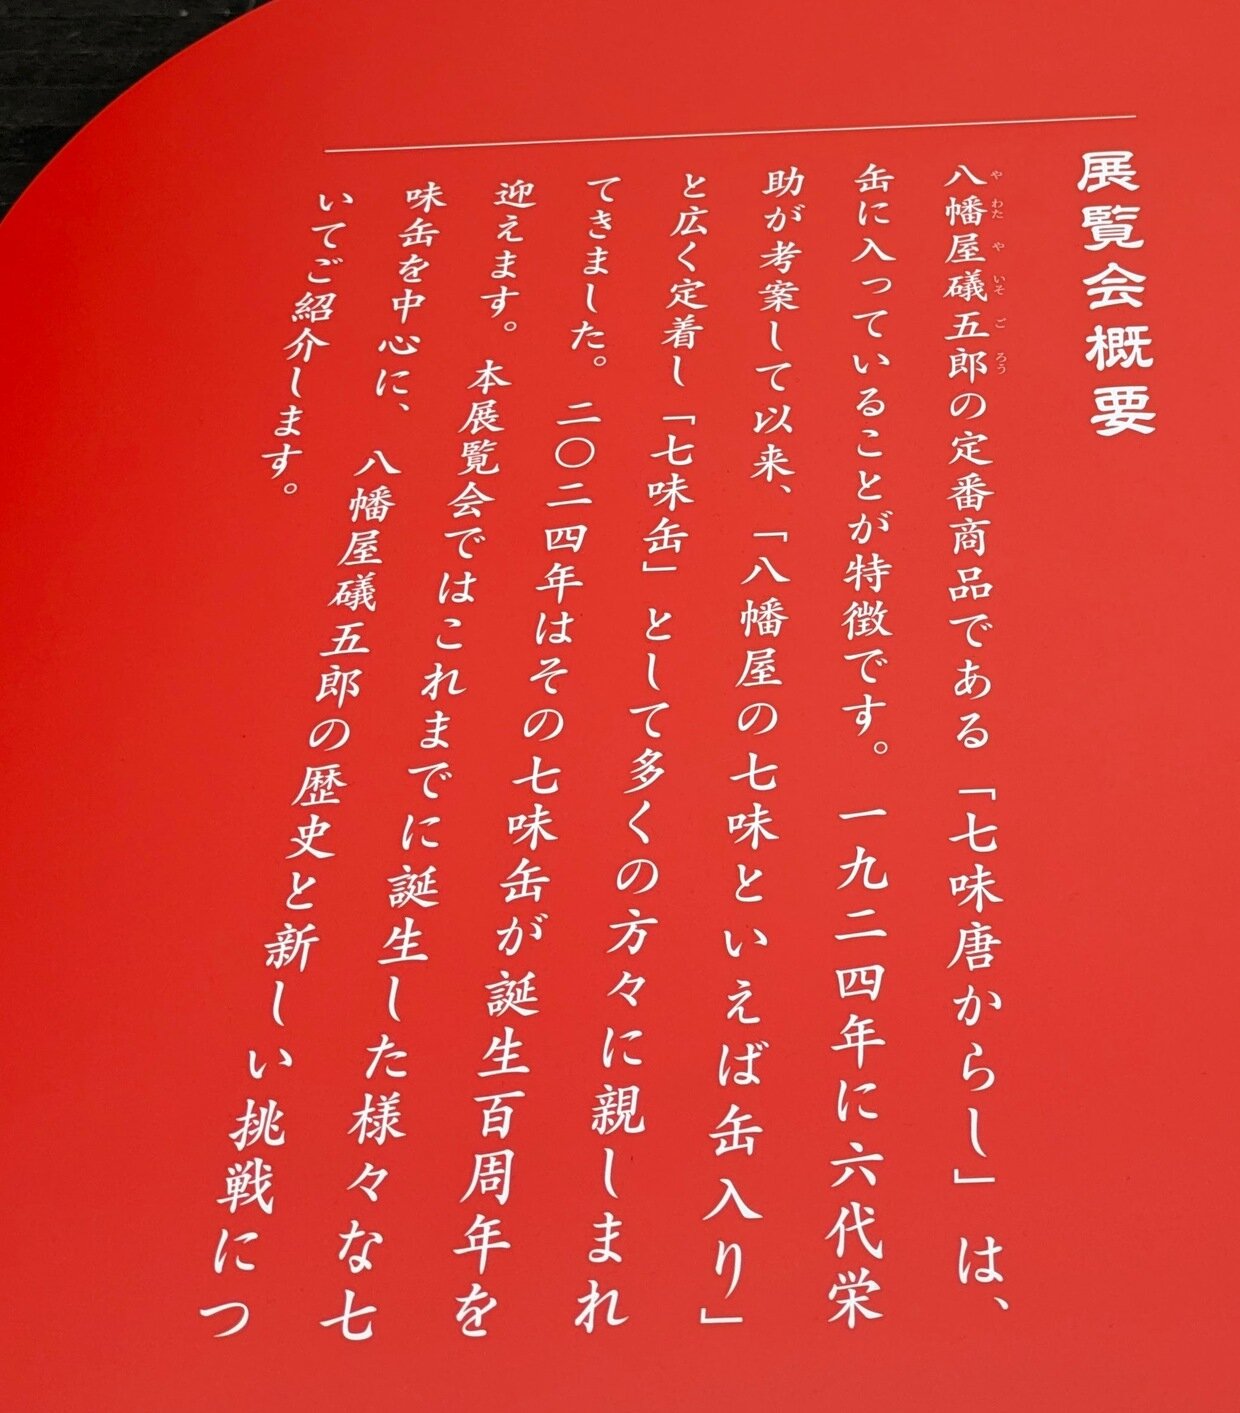 展覧会概要
八幡屋礒五郎の定番商品である「七味唐からし」は、
やわたやいそごろう
缶に入っていることが特徴です。一九二四年に六代栄
助が考案して以来、「八幡屋の七味といえば缶入り」
と広く定着し「七味缶」として多くの方々に親しまれ
てきました。二〇二四年はその七味缶が誕生百周年を
迎えます。本展覧会ではこれまでに誕生した様々な七
味缶を中心に、八幡屋礒五郎の歴史と新しい挑戦につ
いてご紹介します。